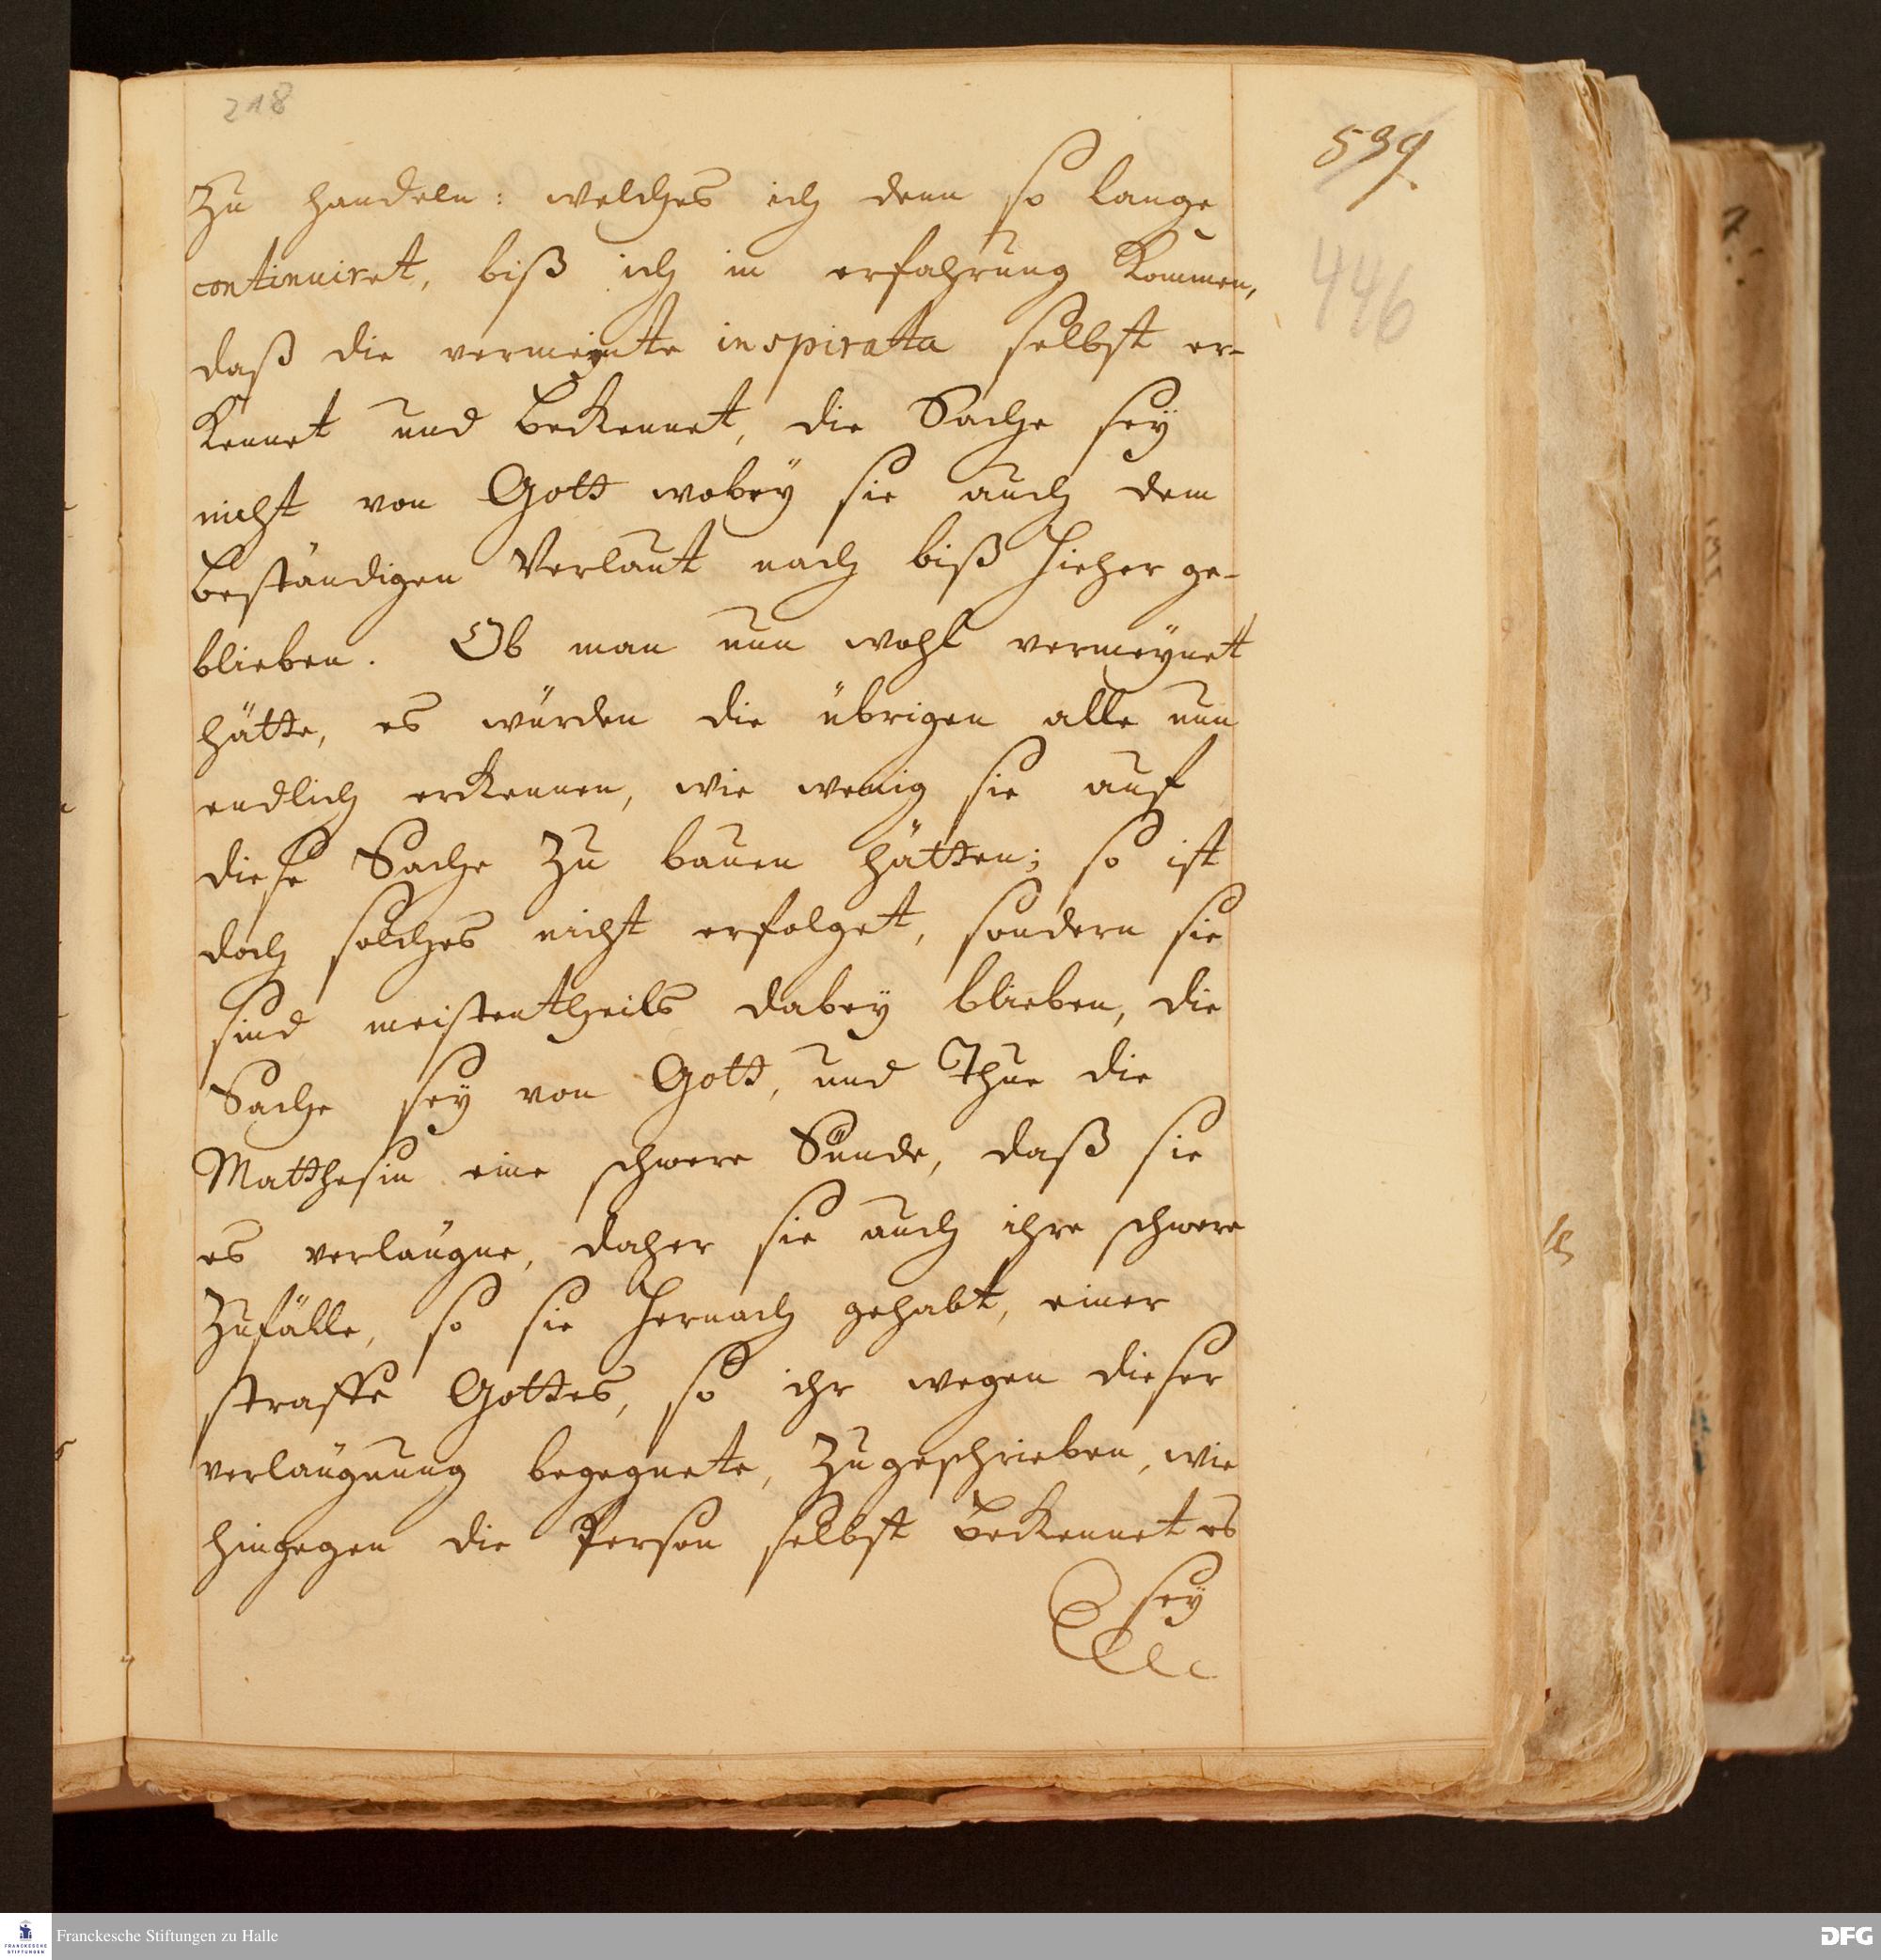 218
539.
446
Zu handeln: welches ich denn so lange
continuiret, biß ich in erfahrung kommen,
daß die vermeynte inspirata selbst er-
kennet und bekennet, die Sache sey
nicht von Gott wobey sie auch dem
beständigen Verlaut nach biß hieher ge-
blieben. Ob man nun wohl vermeynet
hätte, es würden die übrigen alle nun
endlich erkennen, wie wenig sie auf
diese Sache zu bauen hätten; so ist
doch solches nicht erfolget, sondern sie
sind meistentheils dabey blieben, die
Sache sey von Gott, und Thue die
Matthesin eine schwere Sünde, daß sie
es verläugne, daher sie auch ihre schwere
Zufälle, so sie hernach gehabt, einer
straffe Gottes, so ihr wegen dieser
verläugnung begegnete, zugeschrieben, wie
hingegen die Person selbst bekennet es
sey
Franckesche Stiftungen zu Halle
FRANCKESCHE
STIFTUNGEN
DFG